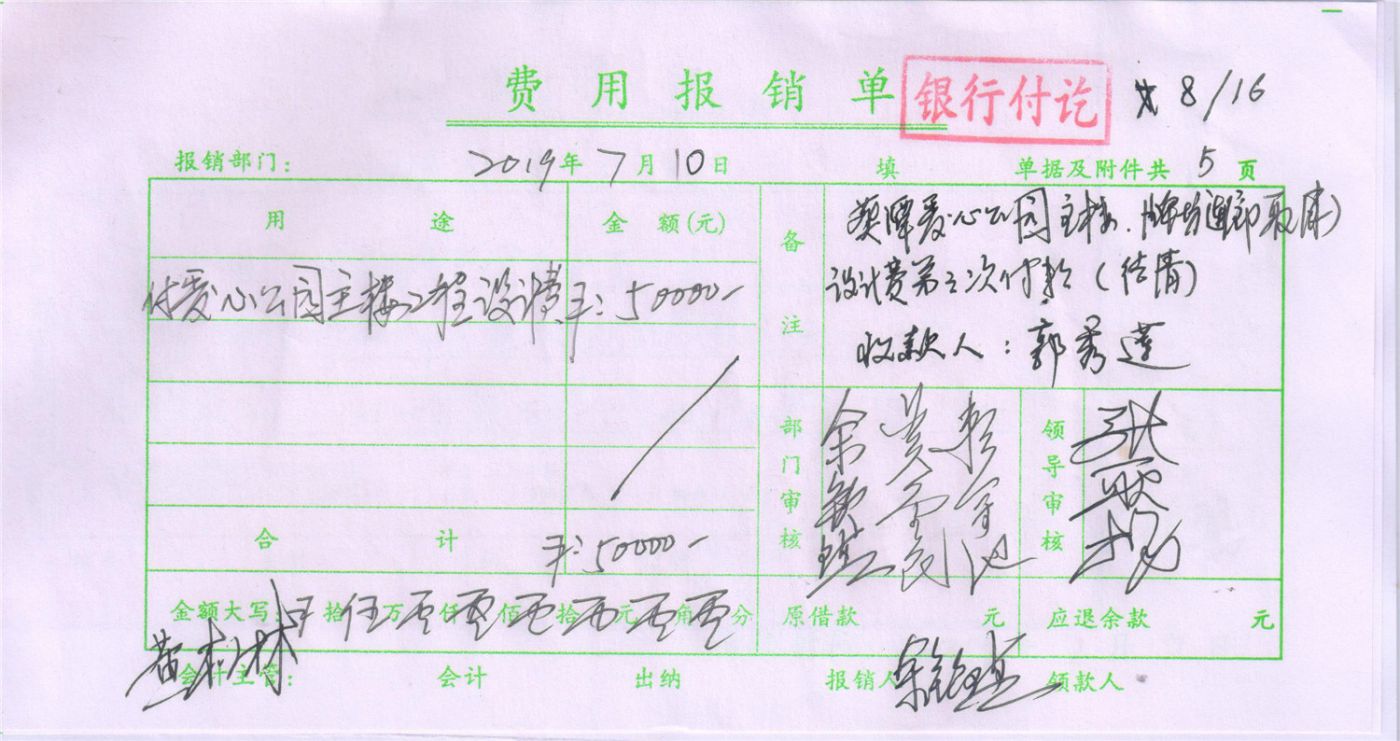 费用报销单 银行付讫 8/16
报销部门： 2019年7月10日 填 单据及附件共 5 页
用途 金额(元) 备注
爱心公园主楼、牌坊连廊
付爱心公园主楼工程设计费 ¥:50000-
设计费第3次付款(结清)
收款人：郭秀莲
部门审核 领导审核
合计 ¥:50000-
金额大写：¥拾伍万零仟零佰零拾零元零角零分 原借款 元 应退余款 元
会计主管： 会计 出纳 报销人 领款人